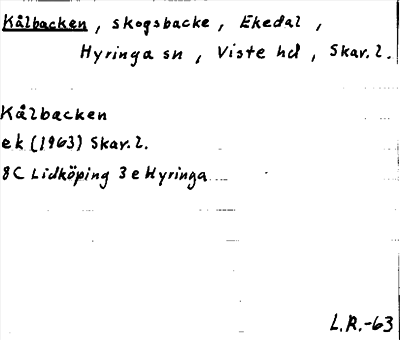 Kålbacken, skogsbacke, Ekedal,
Hyringa sn, Viste hd, Skar. l.
Kålbacken
ek (1963) Skar. l.
8C Lidköping 3e Hyringa
L.R.-63